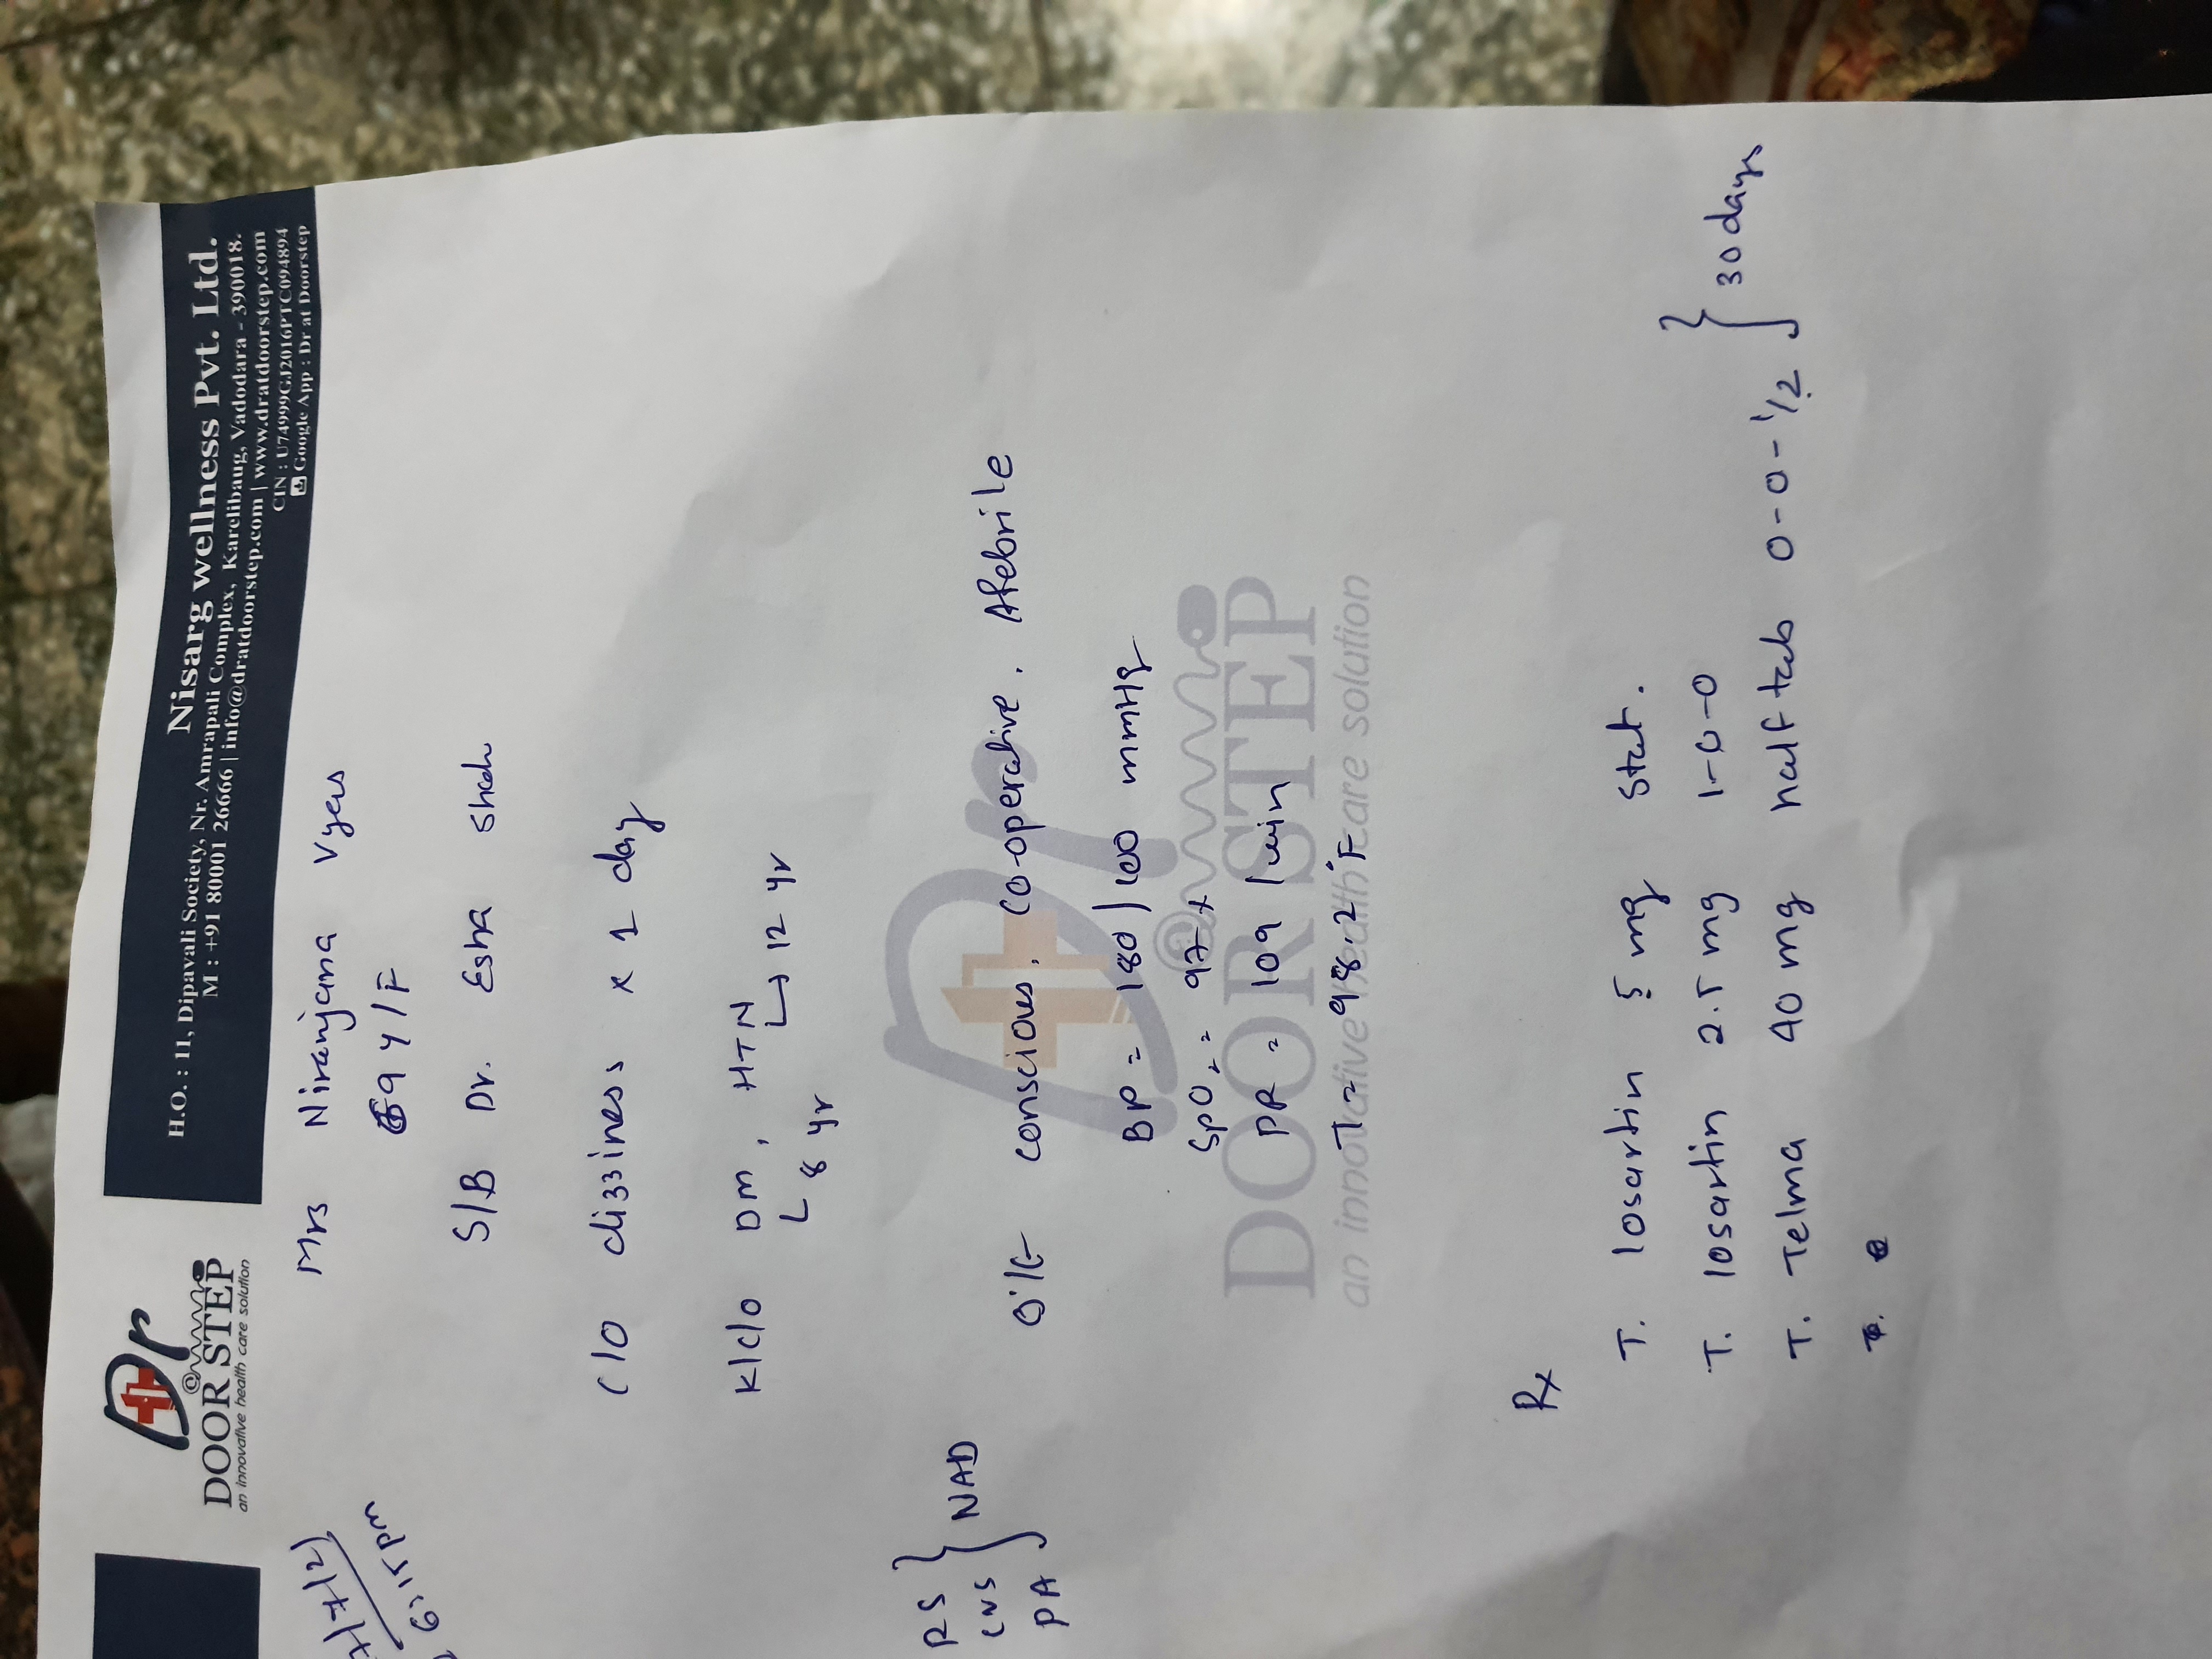 Dr
@
DOOR STEP
an innovative health care solution
Nisarg wellness Pvt. Ltd.
H.O. : 11, Dipavali Society, Nr. Amrapali Complex, Karelibaug, Vadodara - 390018.
M : +91 80001 26666 | info@dratdoorstep.com | www.dratdoorstep.com
CIN : U74999GJ2016PTC094894
Google App : Dr at Doorstep
7/7/21
6:15pm
Mrs Niranjana Vyas
69 Y/F
S/B Dr. Esha Shah
C/O dizziness x 1 day
K/C/O DM, HTN
12 yr
8 yr
RS
CNS
PA
NAD
O/E conscious, co-operative, Afebrile
BP = 180/100 mmHg
SpO2 = 97 %
PR = 109 /min
T = 98.2 °F
Dr
@
DOOR STEP
an innovative health care solution
Rx
T. losartin 5 mg stat.
T. losartin 2.5 mg 1-0-0
T. Telma 40 mg half tab 0-0-1/2
30 days
T.